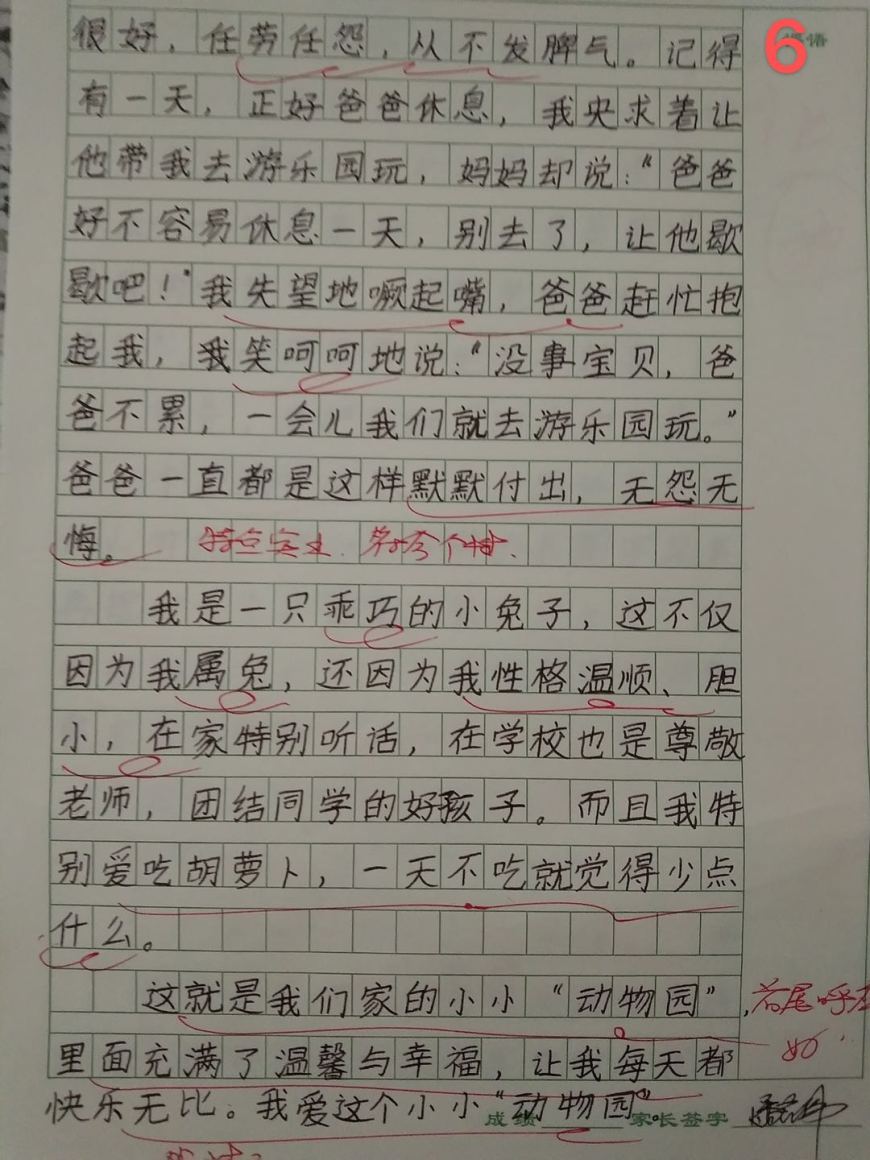 很好，任劳任怨，从不发脾气。记得
6
有一天，正好爸爸休息，我央求着让
他带我去游乐园玩，妈妈却说：“爸爸
好不容易休息一天，别去了，让他歇
歇吧！”我失望地噘起嘴，爸爸赶忙抱
起我，我笑呵呵地说：“没事宝贝，爸
爸不累，一会儿我们就去游乐园玩。”
爸爸一直都是这样默默付出，无怨无
悔。
特点突出
我是一只乖巧的小兔子，这不仅
因为我属兔，还因为我性格温顺、胆
小，在家特别听话，在学校也是尊敬
老师，团结同学的好孩子。而且我特
别爱吃胡萝卜，一天不吃就觉得少点
什么。
这就是我们家的小小“动物园”，
首尾呼应
里面充满了温馨与幸福，让我每天都
快乐无比。我爱这个小小“动物园”
成绩 家长签字